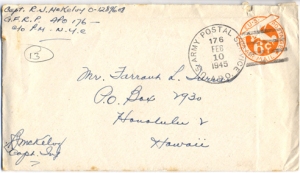 Capt. R. J. McKelvy O-1289609
G.F.R.P. APO 176-
c/o P.M. - N.Y.C
13
ARMY POSTAL SERVICE
176
FEB
10
1945
A.P.O.
6¢
Mr. Farrant L.
P.O. Box 2930
Honolulu 2
Hawaii
RJ McKelvy
Capt. Inf